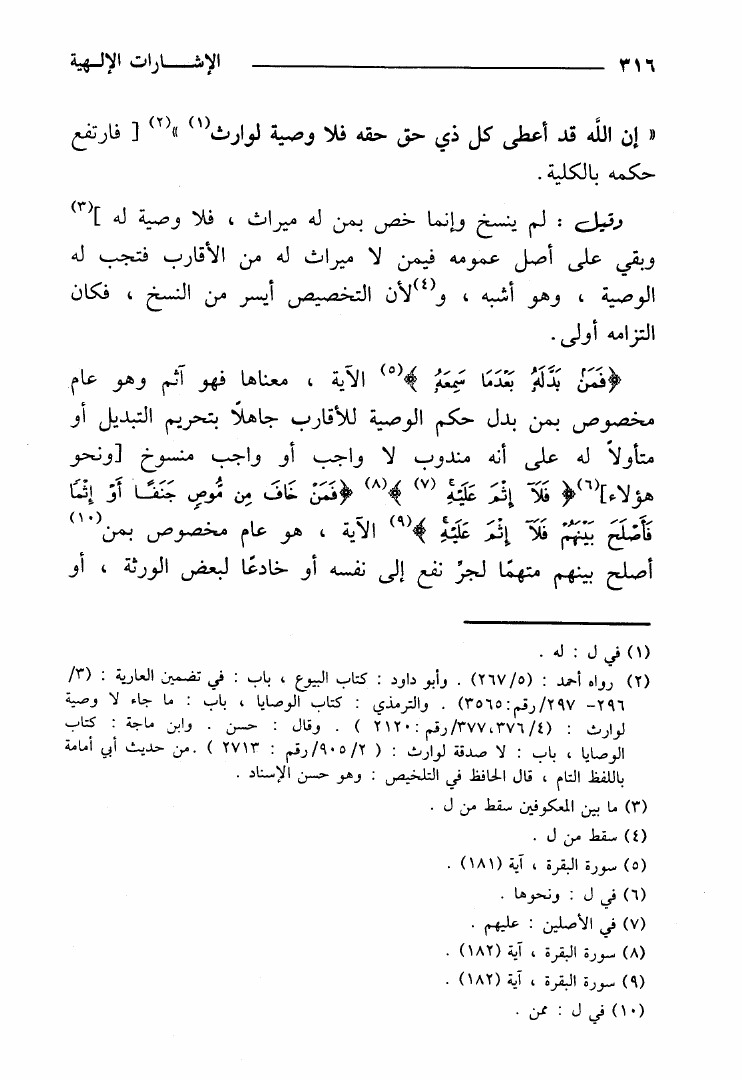 ٣١٦ الإشـــارات الإلـهية
« إن اللَّه قد أعطى كل ذي حق حقه فلا وصية لوارث(١) »(٢) [ فارتفع
حكمه بالكلية .
وقيل : لم ينسخ وإنما خص بمن له ميراث ، فلا وصية له ](٣)
وبقي على أصل عمومه فيمن لا ميراث له من الأقارب فتجب له
الوصية ، وهو أشبه ، و(٤)لأن التخصيص أيسر من النسخ ، فكان
التزامه أولى .
﴿فَمَنۢ بَدَّلَهُۥ بَعْدَمَا سَمِعَهُۥ ﴾(٥) الآية ، معناها فهو آثم وهو عام
مخصوص بمن بدل حكم الوصية للأقارب جاهلاً بتحريم التبديل أو
متأولاً له على أنه مندوب لا واجب أو واجب منسوخ [ونحو
هؤلاء](٦)﴿ فَلَآ إِثْمَ عَلَيْهِۚ (٧) ﴾(٨) ﴿فَمَنْ خَافَ مِن مُّوصٍ جَنَفًا أَوْ إِثْمًا
فَأَصْلَحَ بَيْنَهُمْ فَلَآ إِثْمَ عَلَيْهِۚ ﴾(٩) الآية ، هو عام مخصوص بمن(١٠)
أصلح بينهم متهمًا لجرِّ نفع إلى نفسه أو خادعًا لبعض الورثة ، أو
(١) في ل : له .
(٢) رواه أحمد : (٢٦٧/٥) . وأبو داود : كتاب البيوع ، باب : في تضمين العارية : (٣/
٢٩٦- ٢٩٧/رقم:٣٥٦٥) . والترمذي : كتاب الوصايا ، باب : ما جاء لا وصية
لوارث : (٤/ ٣٧٦،٣٧٧/رقم:٢١٢٠ ) . وقال : حسن . وابن ماجة : كتاب
الوصايا ، باب : لا صدقة لوارث : ( ٩٠٥/٢/رقم : ٢٧١٣ ) .من حديث أبي أمامة
باللفظ التام ، قال الحافظ في التلخيص : وهو حسن الإسناد .
(٣) ما بين المعكوفين سقط من ل .
(٤) سقط من ل .
(٥) سورة البقرة ، آية (١٨١) .
(٦) في ل : ونحوها .
(٧) في الأصلين : عليهم .
(٨) سورة البقرة ، آية (١٨٢) .
(٩) سورة البقرة ، آية (١٨٢) .
(١٠) في ل : ممن .